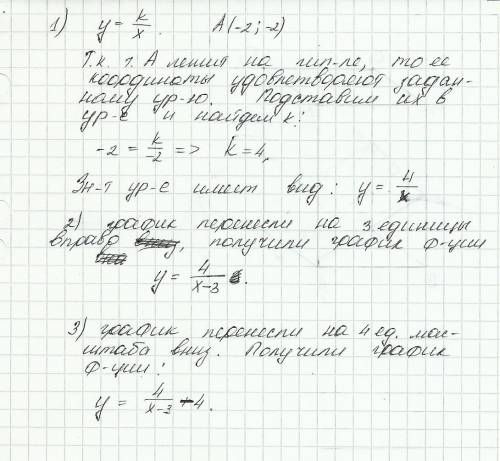 1) y = k/x. A(-2; -2)
Т.к. т. А лежит на гип-ле, то ее
координаты удовлетворяют задан-
ному ур-ю. Подставим их в
ур-е и найдем k:
-2 = k/-2 => k = 4,
Зн-т ур-е имеет вид: y = 4/x
2) график перенесли на 3 единицы
вправо, получили график ф-ции
y = 4/x-3.
3) график перенесли на 4 ед. мас-
штаба вниз. Получили график
ф-ции:
y = 4/x-3 - 4.